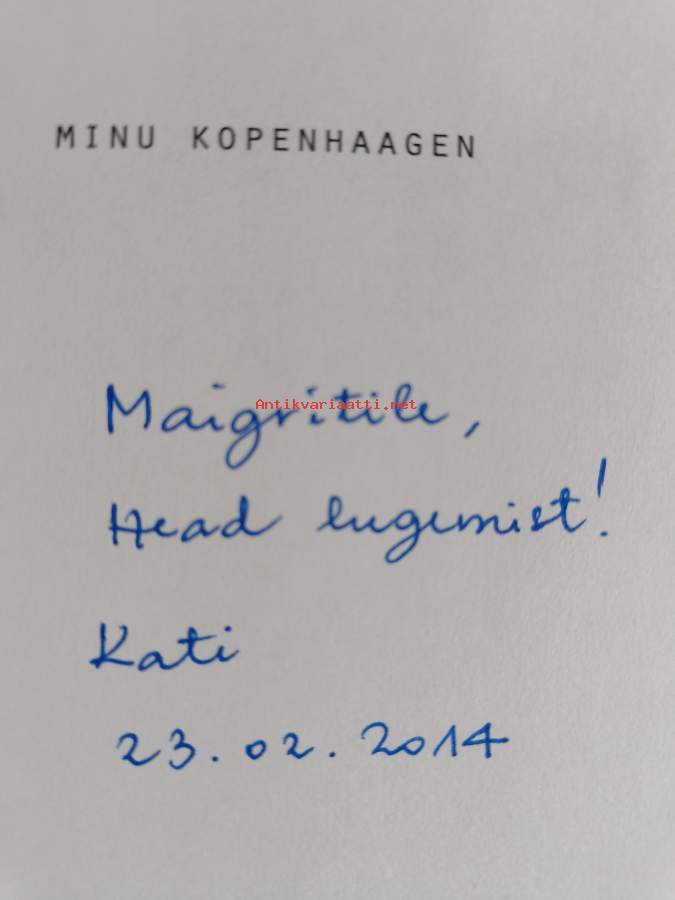 MINU KOPENHAAGEN
Maigritile,
Antikvariaatti.net
Head lugemist!
Kati
23.02.2014